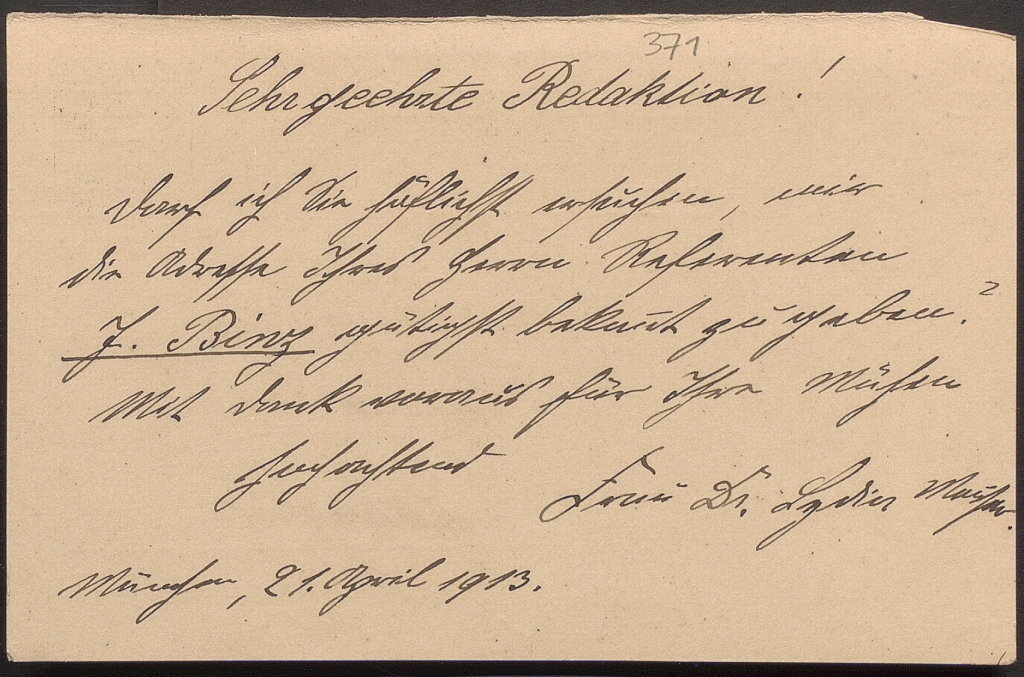 371
Sehrgeehrte Redaktion!
Darf ich Sie höflichst ersuchen, mir
die Adresse Ihres Herrn Referenten
J. Binz gütigst bekannt zu geben?
Mit Dank voraus für Ihre Mühen
hochachtend
Frau Dr. Lydia
München, 21. April 1913.